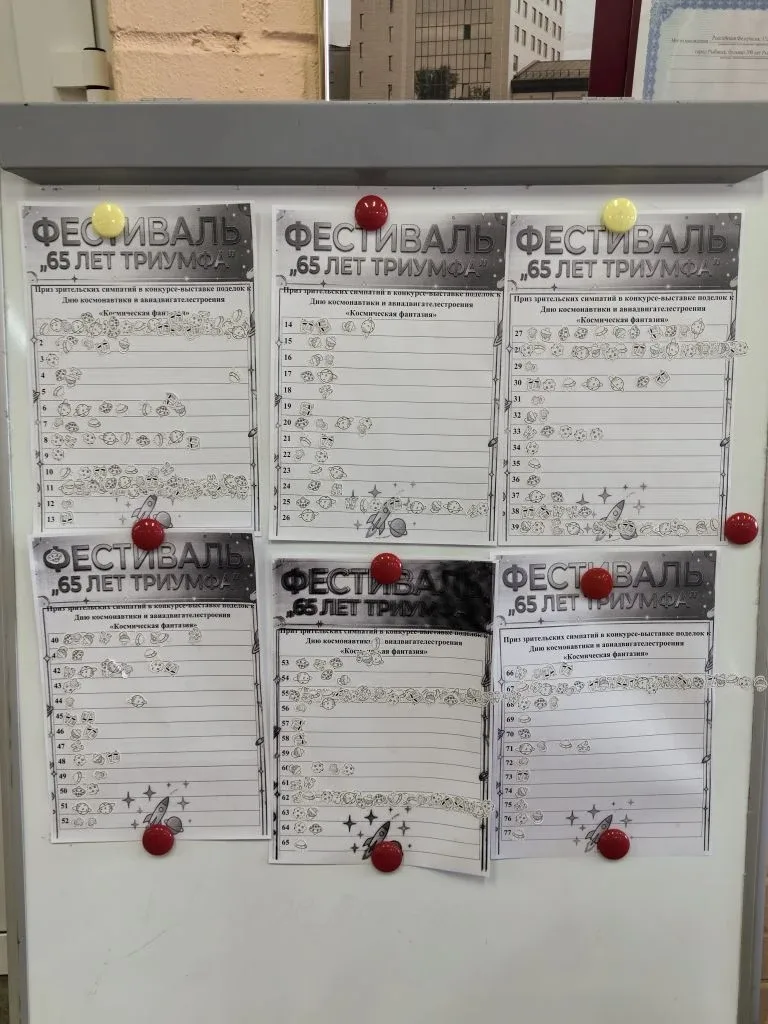 Российская Федерация, 152
город Рыбинск, бульвар 200 лет Ры
ФЕСТИВАЛЬ
„65 ЛЕТ ТРИУМФА"
Приз зрительских симпатий в конкурсе-выставке поделок к
Дню космонавтики и авиадвигателестроения
«Космическая фантазия»
2
3
4
5
6
7
8
9
10
11
12
13
ФЕСТИВАЛЬ
„65 ЛЕТ ТРИУМФА"
Приз зрительских симпатий в конкурсе-выставке поделок к
Дню космонавтики и авиадвигателестроения
«Космическая фантазия»
14
15
16
17
18
19
20
21
22
23
24
25
26
ФЕСТИВАЛЬ
„65 ЛЕТ ТРИУМФА"
Приз зрительских симпатий в конкурсе-выставке поделок к
Дню космонавтики и авиадвигателестроения
«Космическая фантазия»
27
2
29
30
31
32
33
34
35
36
37
38
39
ФЕСТИВАЛЬ
„65 ЛЕТ ТРИУМФА"
Приз зрительских симпатий в конкурсе-выставке поделок к
Дню космонавтики и авиадвигателестроения
«Космическая фантазия»
40
4
42
43
44
45
46
47
48
49
50
51
52
ФЕСТИВАЛЬ
„65 ЛЕТ ТРИУМФА"
Приз зрительских симпатий в конкурсе-выставке поделок к
Дню космонавтики и авиадвигателестроения
«Космическая фантазия»
53
54
55
56
57
58
59
60
61
62
63
64
65
ФЕСТИВАЛЬ
„65 ЛЕТ ТРИУМФА"
Приз зрительских симпатий в конкурсе-выставке поделок к
Дню космонавтики и авиадвигателестроения
«Космическая фантазия»
66
67
68
69
70
71
72
73
74
75
76
77